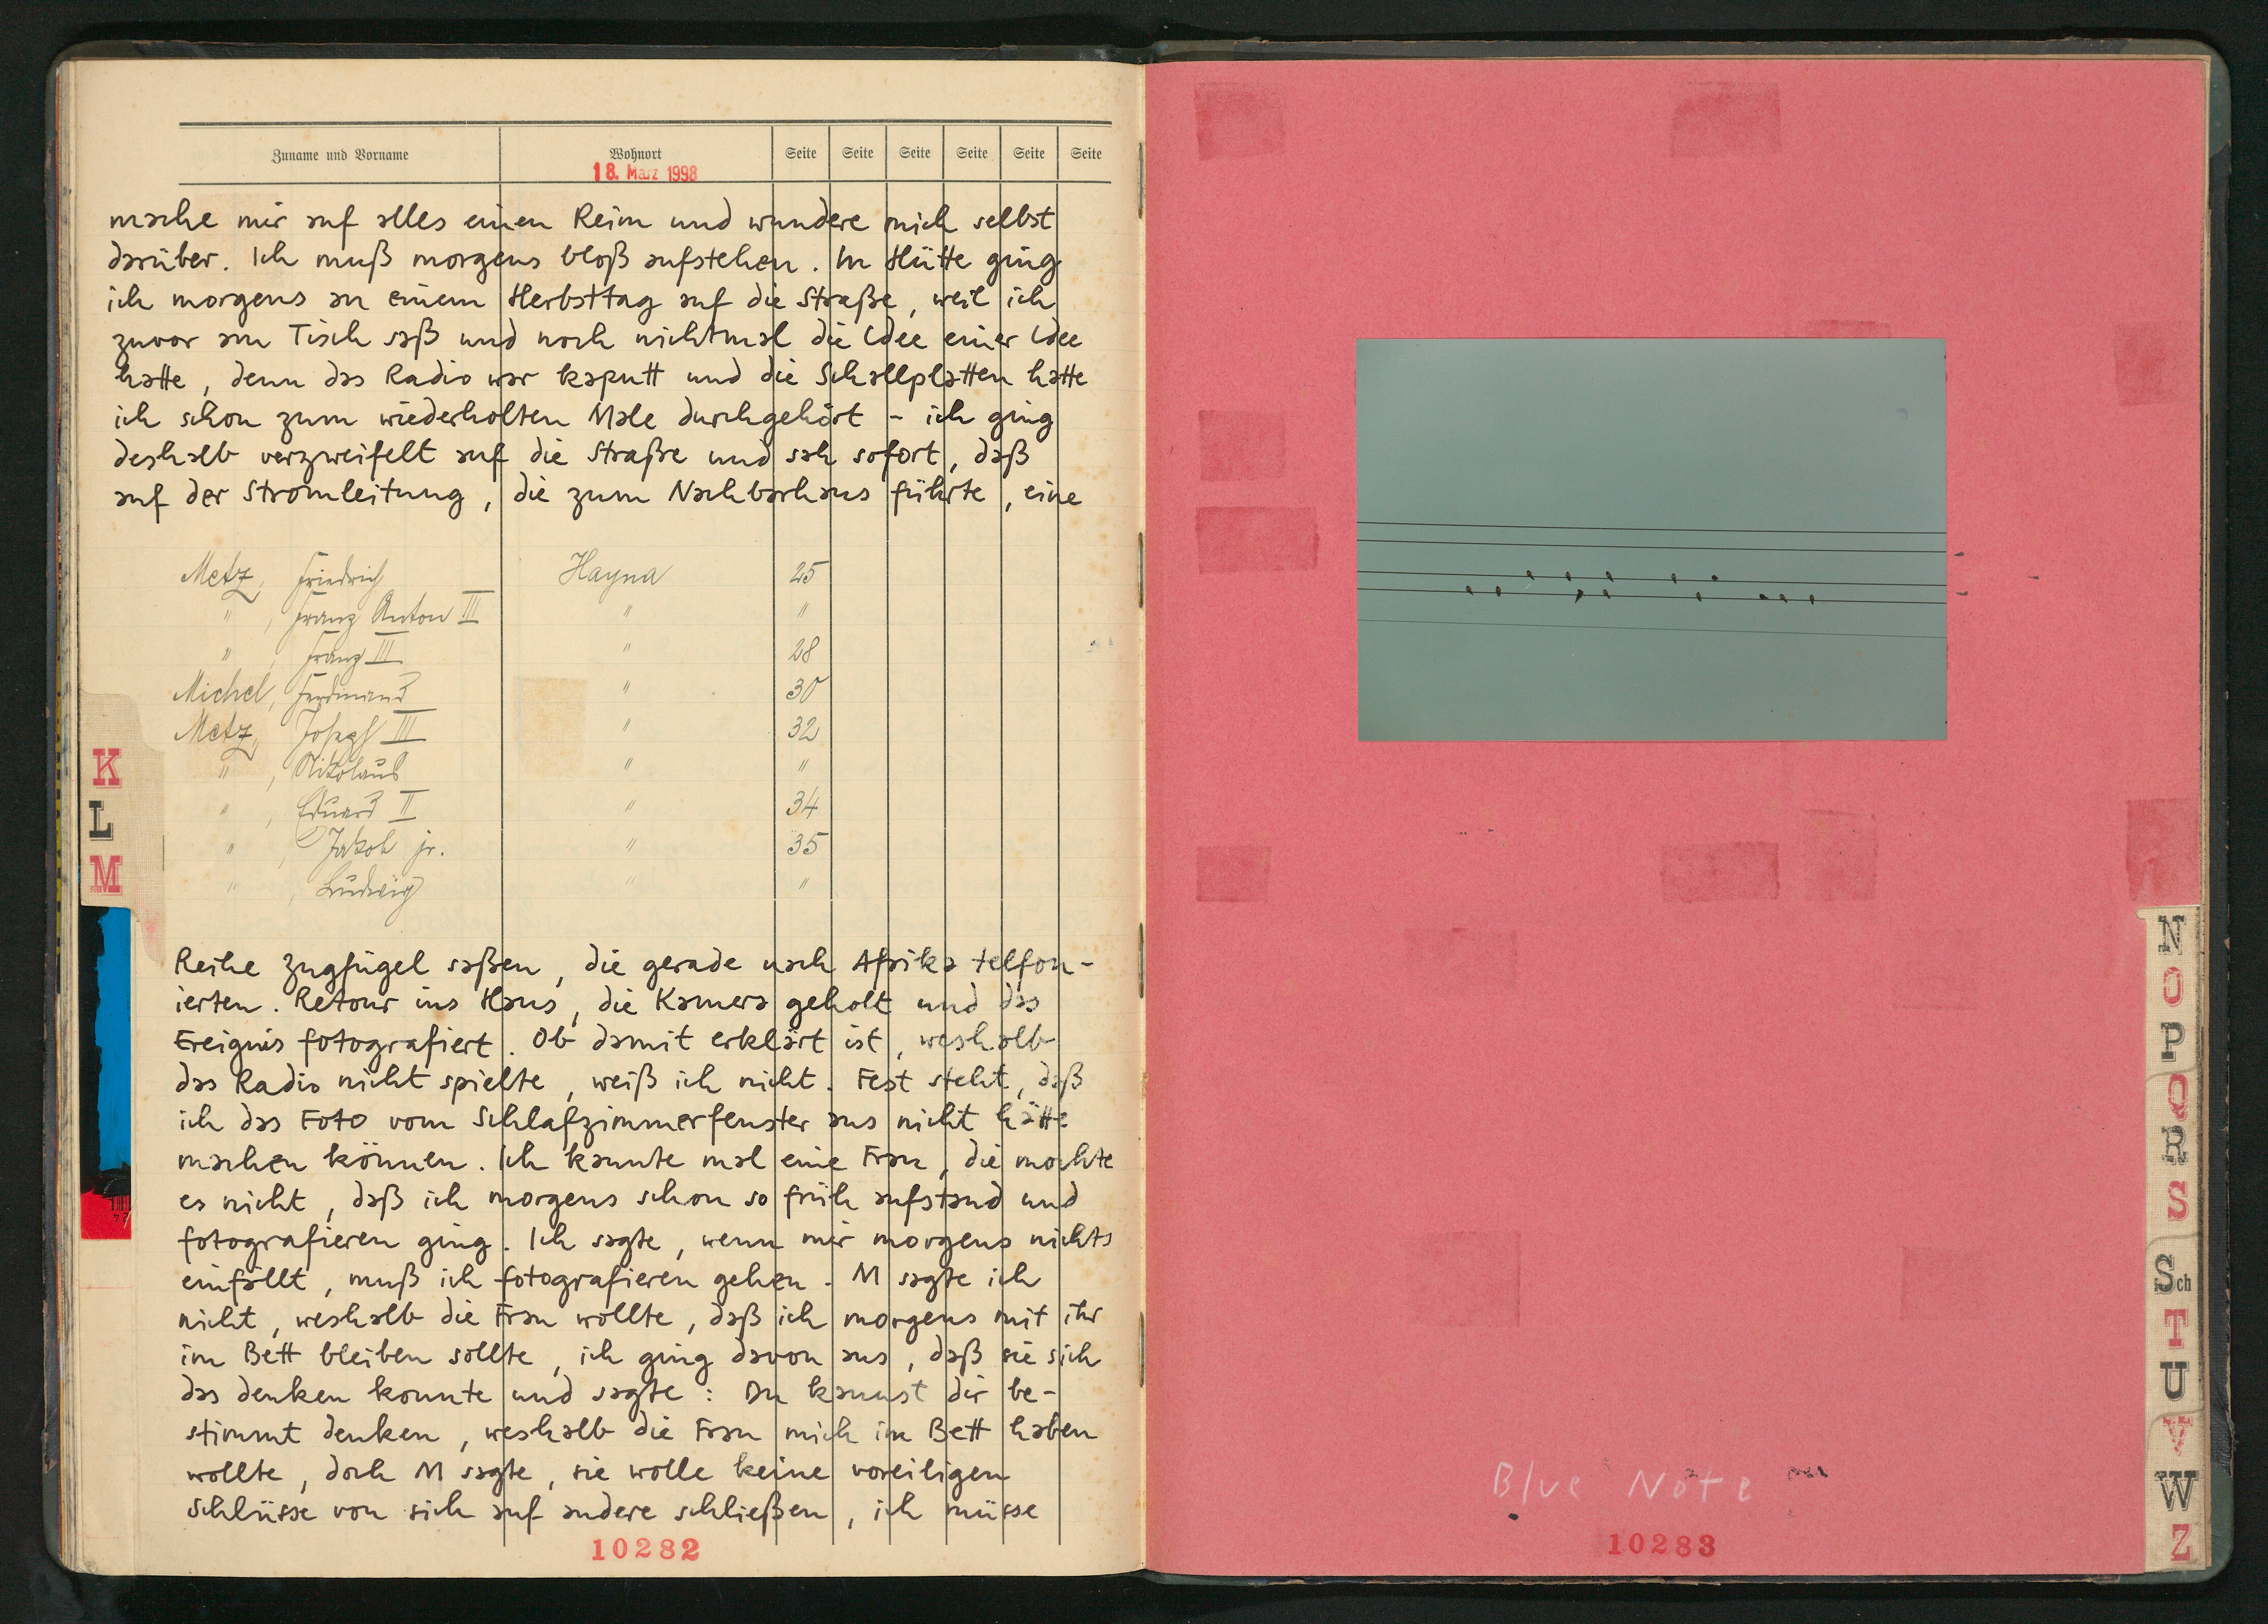 Zuname und Vorname Wohnort Seite Seite Seite Seite Seite Seite
18. März 1998
mache mir auf alles einen Reim und wundere mich selbst
darüber. Ich muß morgens bloß aufstehen. In Hütte ging
ich morgens an einem Herbsttag auf die Straße, weil ich
zuvor am Tisch saß und noch nichtmal die Idee einer Idee
hatte, denn das Radio war kaputt und die Schallplatten hatte
ich schon zum wiederholten Male durchgehört - ich ging
deshalb verzweifelt auf die Straße und sah sofort, daß
auf der Stromleitung, die zum Nachbarhaus führte, eine
Metz, Friedrich Hayna 25
" , Franz Anton III " "
" , Franz III " 28
Michel, Ferdinand " 30
Metz, Joseph III " 32
" , Nikolaus " "
" , Eduard II " 34
" , Jakob jr. " 35
" , Ludwig " "
Reihe Zugfügel saßen, die gerade nach Afrika telfon-
ierten. Retour ins Haus, die Kamera geholt und das
Ereignis fotografiert. Ob damit erklärt ist, weshalb
das Radio nicht spielte, weiß ich nicht. Fest steht, daß
ich das Foto vom Schlafzimmerfenster aus nicht hätte
machen können. Ich kannte mal eine Frau, die mochte
es nicht, daß ich morgens schon so früh aufstand und
fotografieren ging. Ich sagte, wenn mir morgens nichts
einfällt, muß ich fotografieren gehen. M sagte ich
nicht, weshalb die Frau wollte, daß ich morgens mit ihr
im Bett bleiben sollte, ich ging davon aus, daß sie sich
das denken konnte und sagte: Du kannst dir be-
stimmt denken, weshalb die Frau mich im Bett haben
wollte, doch M sagte, sie wolle keine voreiligen
Schlüsse von sich auf andere schließen, ich müsse
10282
K
L
M
Blue Note
10283
N
O
P
Q
R
S
Sch
T
U
V
W
Z